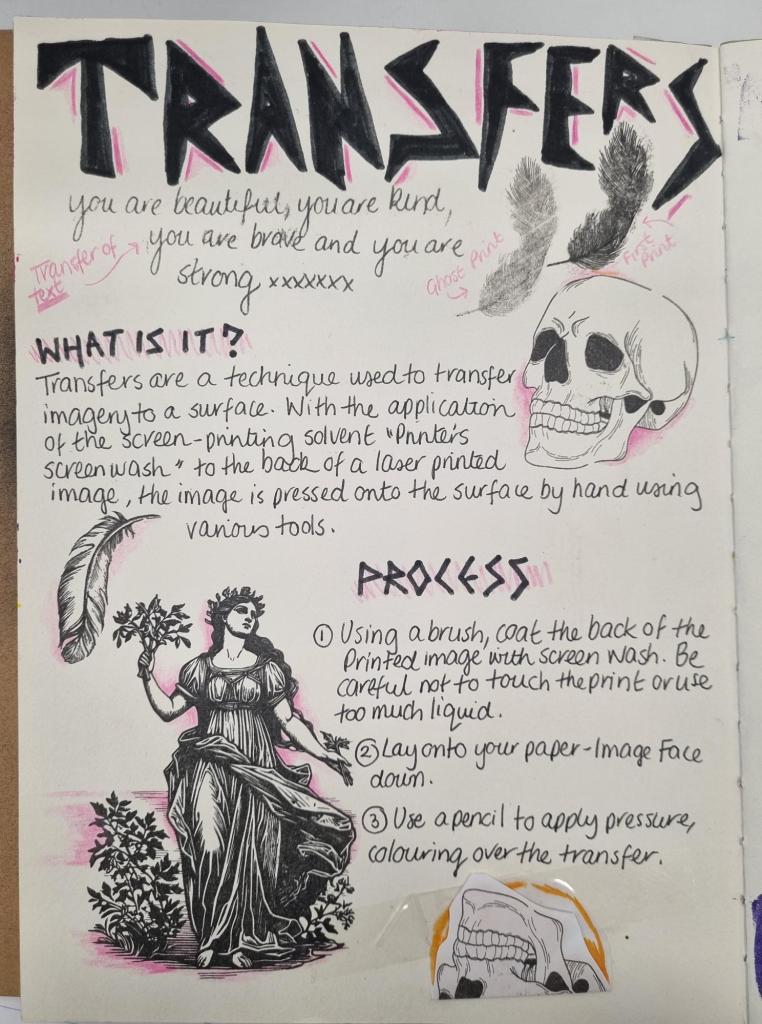 TRANSFERS
you are beautiful, you are kind,
you are brave and you are
strong xxxxxxx
Transfer of
text
Ghost Print
First
Print
WHAT IS IT?
Transfers are a technique used to transfer
imagery to a surface. With the application
of the screen-printing solvent "Printers
screenwash" to the back of a laser printed
image, the image is pressed onto the surface by hand using
various tools.
PROCESS
① Using a brush, coat the back of the
Printed image with screen wash. Be
careful not to touch the print or use
too much liquid.
② Lay onto your paper-Image Face
down.
③ Use a pencil to apply pressure,
colouring over the transfer.